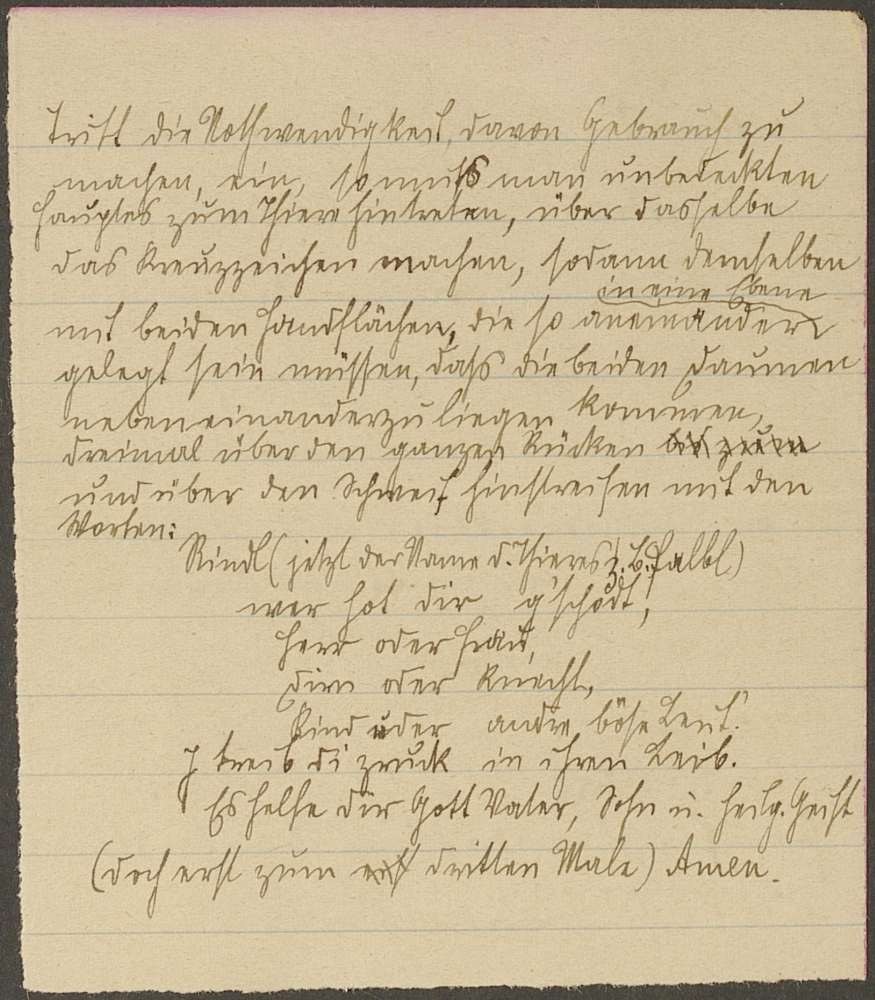 tritt die Nothwendigkeit, davon Gebrauch zu
machen, ein, so muß man unbedeckten
Hauptes zum Thiere hintreten, über dasselbe
das Kreuzzeichen machen, sodann demselben
in eine Ebene
mit beiden Handflächen, die so aneinander
gelegt sein müssen, daß die beiden Daumen
nebeneinanderzuliegen kommen,
dreimal über den ganzen Rücken bis zum
und über den Schweif hinstreifen mit den
Worten:
Rindl (jetzt der Name d. Thieres z. B. Falbl)
wer hot dir g'schodt,
Herr oder Frau,
Dirn oder Knecht,
Kind oder andre böse Leut'.
I treib di zruck in ihren Leib.
Es helfe dir Gott Vater, Sohn u. heilg. Geist
(doch erst zum dritten Male) Amen.